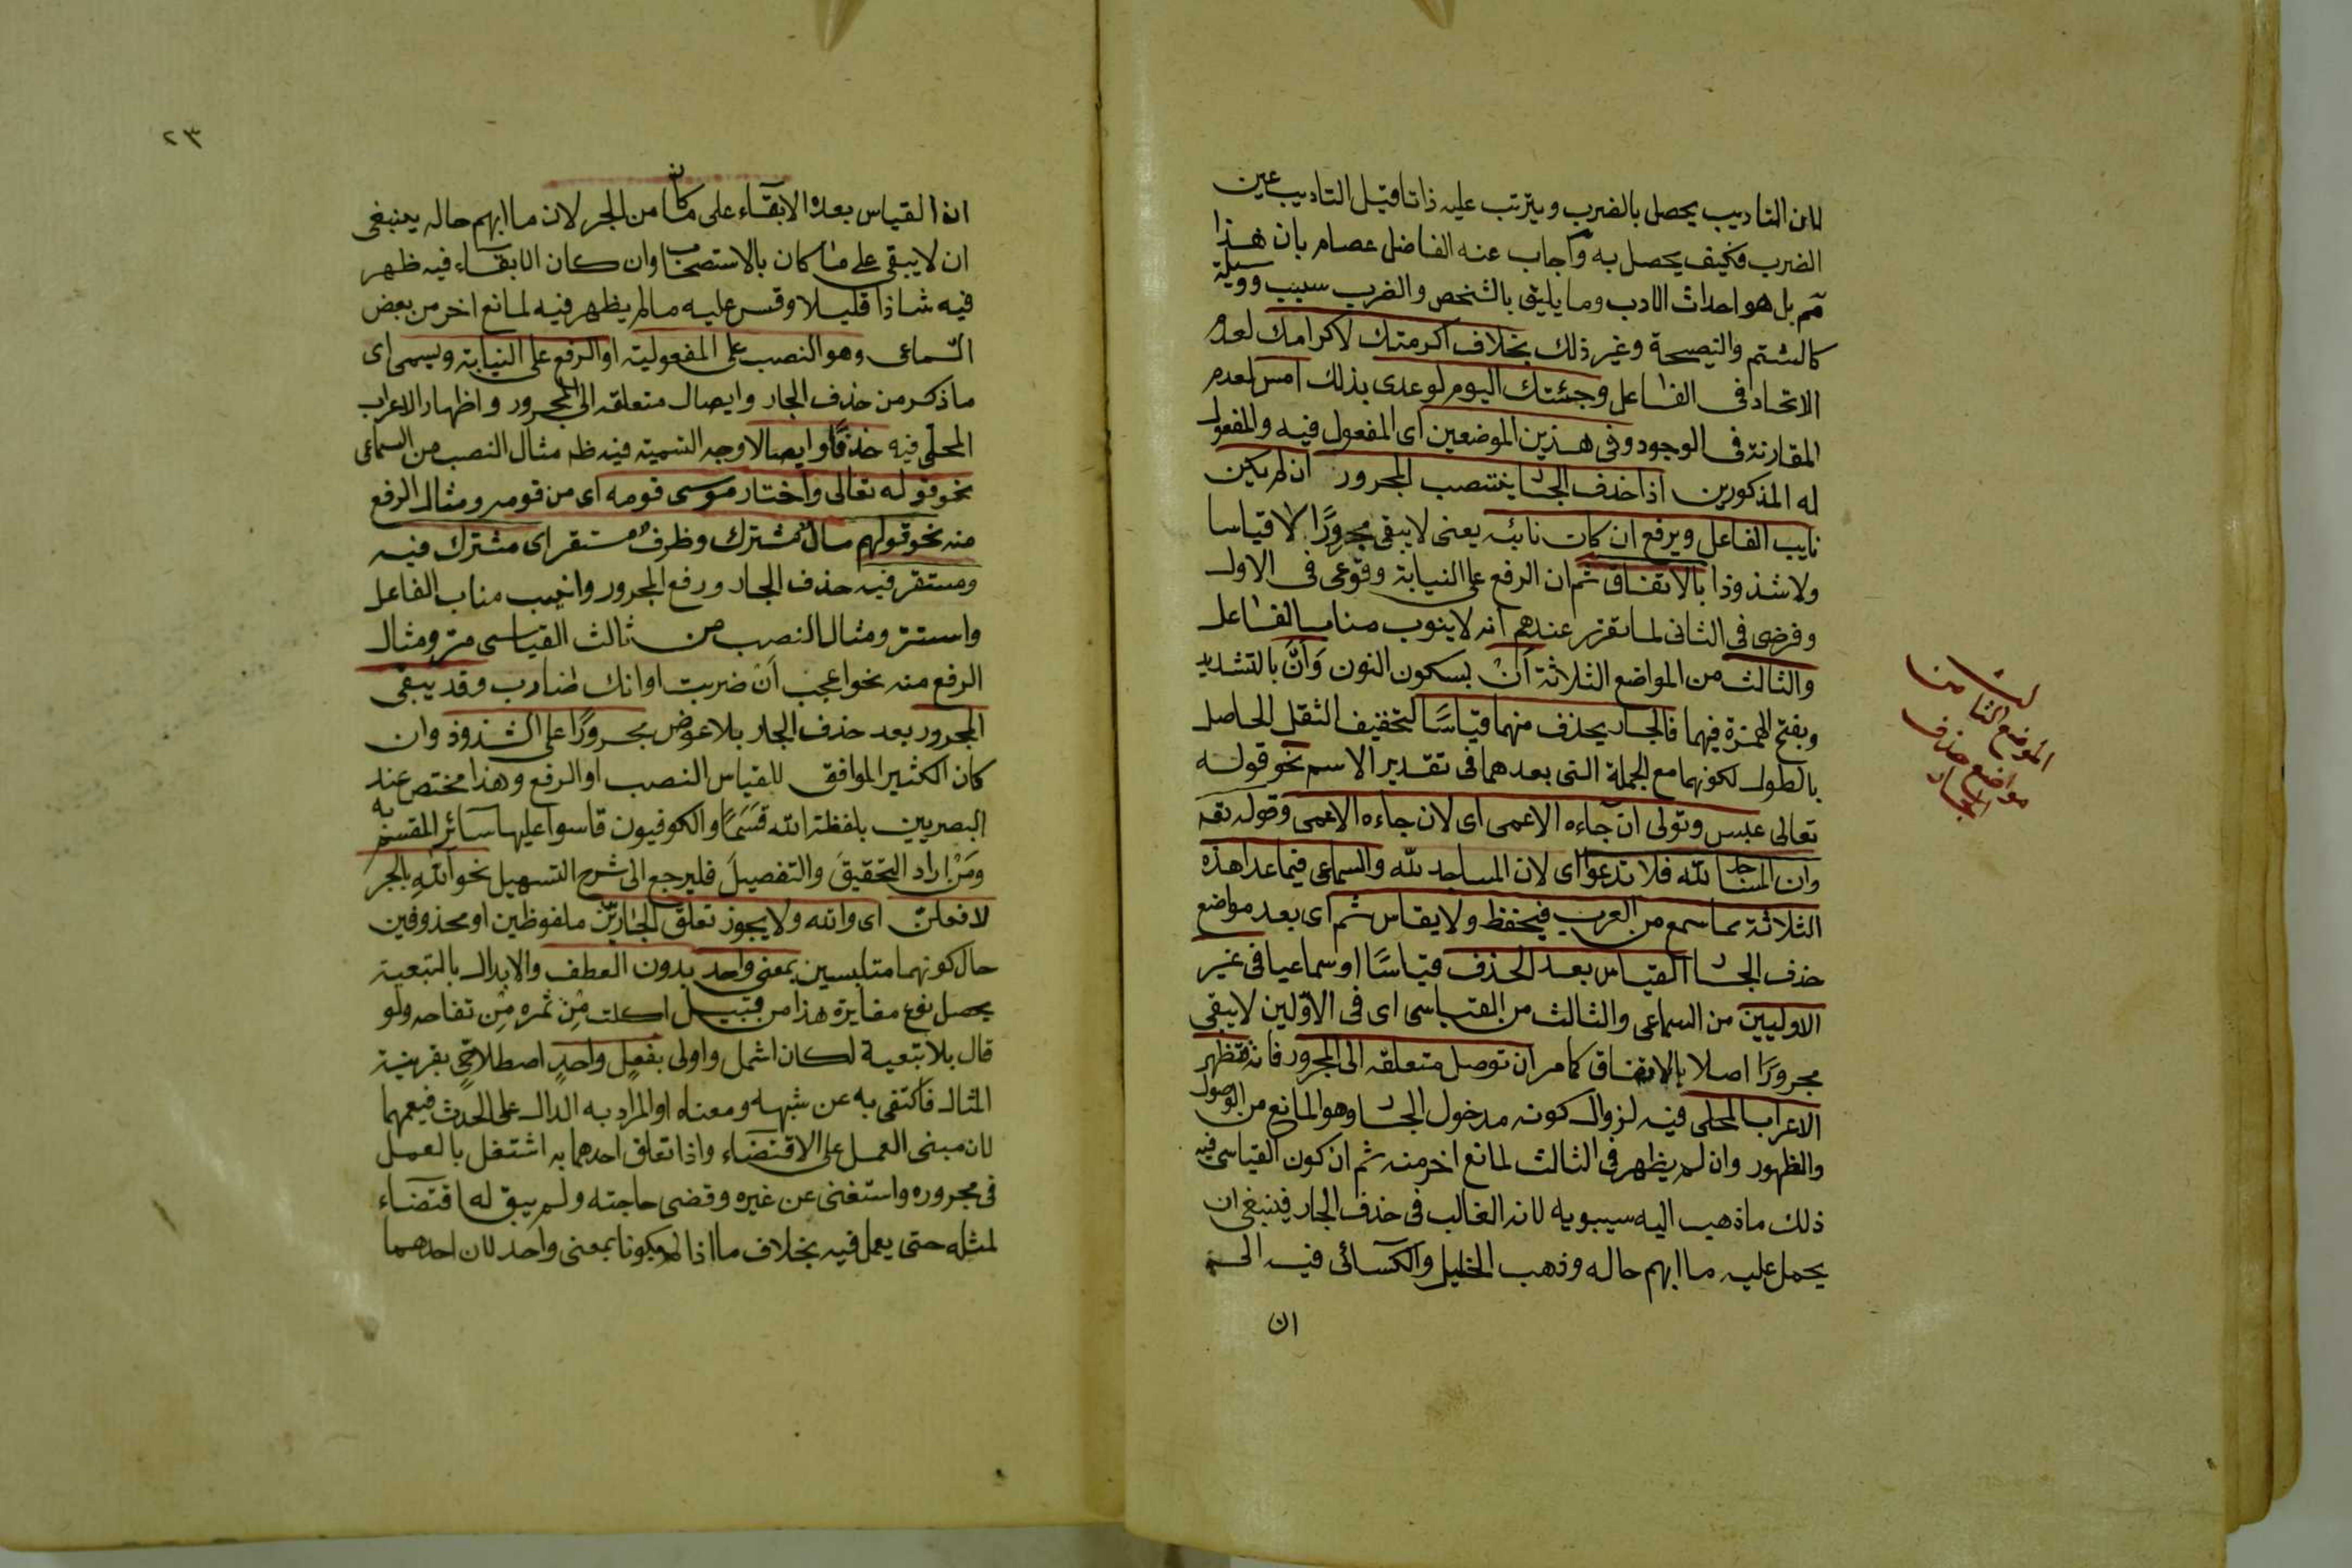 لان التاديب يحصل بالضرب ويترتب عليه ذاتا قيل التاديب عين
الضرب فكيف يحصل به واجاب عنه الفاضل عصام بان هذا
مم بل هو احداث الادب وما يليق بالشخص والضرب سبب ووسيلة
كالشتم والنصيحة وغير ذلك بخلاف اكرمتك لاكرامك لعدم
الاتحاد فى الفاعل وجئتك اليوم لوعدى بذلك امس لعدم
المقارنة فى الوجود وفى هذين الموضعين اى المفعول فيه والمفعول
له المذكورين اذا حذف الجار ينتصب المجرور ان لم يكن
نايب الفاعل ويرفع ان كان نائبه يعنى لا يبقى مجرورًا لا قياسا
ولا شذوذا بالاتفاق ثم ان الرفع على النيابة وقوعى فى الاول
وفرضى فى الثانى لما تقرر عندهم انه لا ينوب مناب الفاعل
والثالث من المواضع الثلاثة اَنْ بسكون النون وَاَنَّ بالتشديد
وبفتح الهمزة فيهما فالجار يحذف منهما قياسًا لتخفيف الثقل الحاصل
بالطول لكونهما مع الجملة التى بعدهما فى تقدير الاسم نحو قوله
تعالى عبس وتولى ان جاءه الاعمى اى لان جاءه الاعمى وقوله تعه
وان المساجد لله فلا تدعوا اى لان المساجد لله والسماعى فيما عدا هذه
الثلاثة مما سمع من العرب فيحفظ ولا يقاس ثم اى بعد مواضع
حذف الجار القياس بعد الحذف قياسًا او سماعيا فى غير
الاوليين من السماعى والثالث من القياسى اى فى الاوّلين لا يبقى
مجرورًا اصلا بالاتفاق كما مر ان توصل متعلقه الى المجرور فانه فتظهر
الاعراب المحلى فيه لزوال كونه مدخول الجار وهو المانع من الوصول
والظهور وان لم يظهر فى الثالث لمانع اخر منه ثم ان كون القياسى فيه
ذلك ما ذهب اليه سيبويه لانه الغالب فى حذف الجار فينبغى ان
يحمل عليه ما ابهم حاله وذهب الخليل والكسائى فيه الى
ان
الموضع الثامن
مواضع حذف
الجار
٢٣
ان القياس بعده الابقاء على ما كان من الجر لان ما ابهم حاله ينبغى
ان لا يبقى على ما كان بالاستصحاب وان كان الابقاء فيه ظهر
فيه شاذا قليلا وقس عليه ما لم يظهر فيه لمانع اخر من بعض
السماعى وهو النصب على المفعولية او الرفع على النيابة ويسمى اى
ما ذكر من حذف الجار وايصال متعلقه الى المجرور واظهار الاعراب
المحلى فيه حذفًا وايصالا وجه التسمية فيه ظه مثال النصب من السماعى
نحو قوله تعالى واختار موسى قومه اى من قومه ومثال الرفع
منه نحو قولهم مال مشترك وظرف مستقر اى مشترك فيه
ومستقر فيه حذف الجار ورفع المجرور وانيب مناب الفاعل
واستتر ومثال النصب من ثالث القياسى مرّ ومثال
الرفع منه نحو اعجب اَنْ ضربت او انك ضارب وقد يبقى
المجرور بعد حذف الجار بلا عوض مجرورًا على الشذوذ وان
كان الكثير الموافق للقياس النصب او الرفع وهذا مختص عند
البصريين بلفظة الله قَسَمًا والكوفيون قاسوا عليها سائر المقسم به
وَمَنْ اراد التحقيقَ والتفصيلَ فليرجع الى شرح التسهيل نحو اللهِ بالجر
لافعلنّ اى والله ولا يجوز تعلق الجارين ملفوظين او محذوفين
حال كونهما متلبسين بمعنى واحد بدون العطف والابدال بالتبعية
يحصل نوع مغايرة هذا من قبيل اكلت مِنْ ثمره مِن تفاحه ولو
قال بلا تبعية لكان اشمل واولى بفعلٍ واحدٍ اصطلاحىّ بقرينة
المثال فاكتفى به عن شبهه ومعناه او المراد به الدال على الحدث فيعمهما
لان مبنى العمل على الاقتضاء واذا تعلق احدهما به اشتغل بالعمل
فى مجروره واستغنى عن غيره وقضى حاجته ولم يبق له اقتضاء
لمثله حتى يعمل فيه بخلاف ما اذا لم يكونا بمعنى واحد لان احدهما